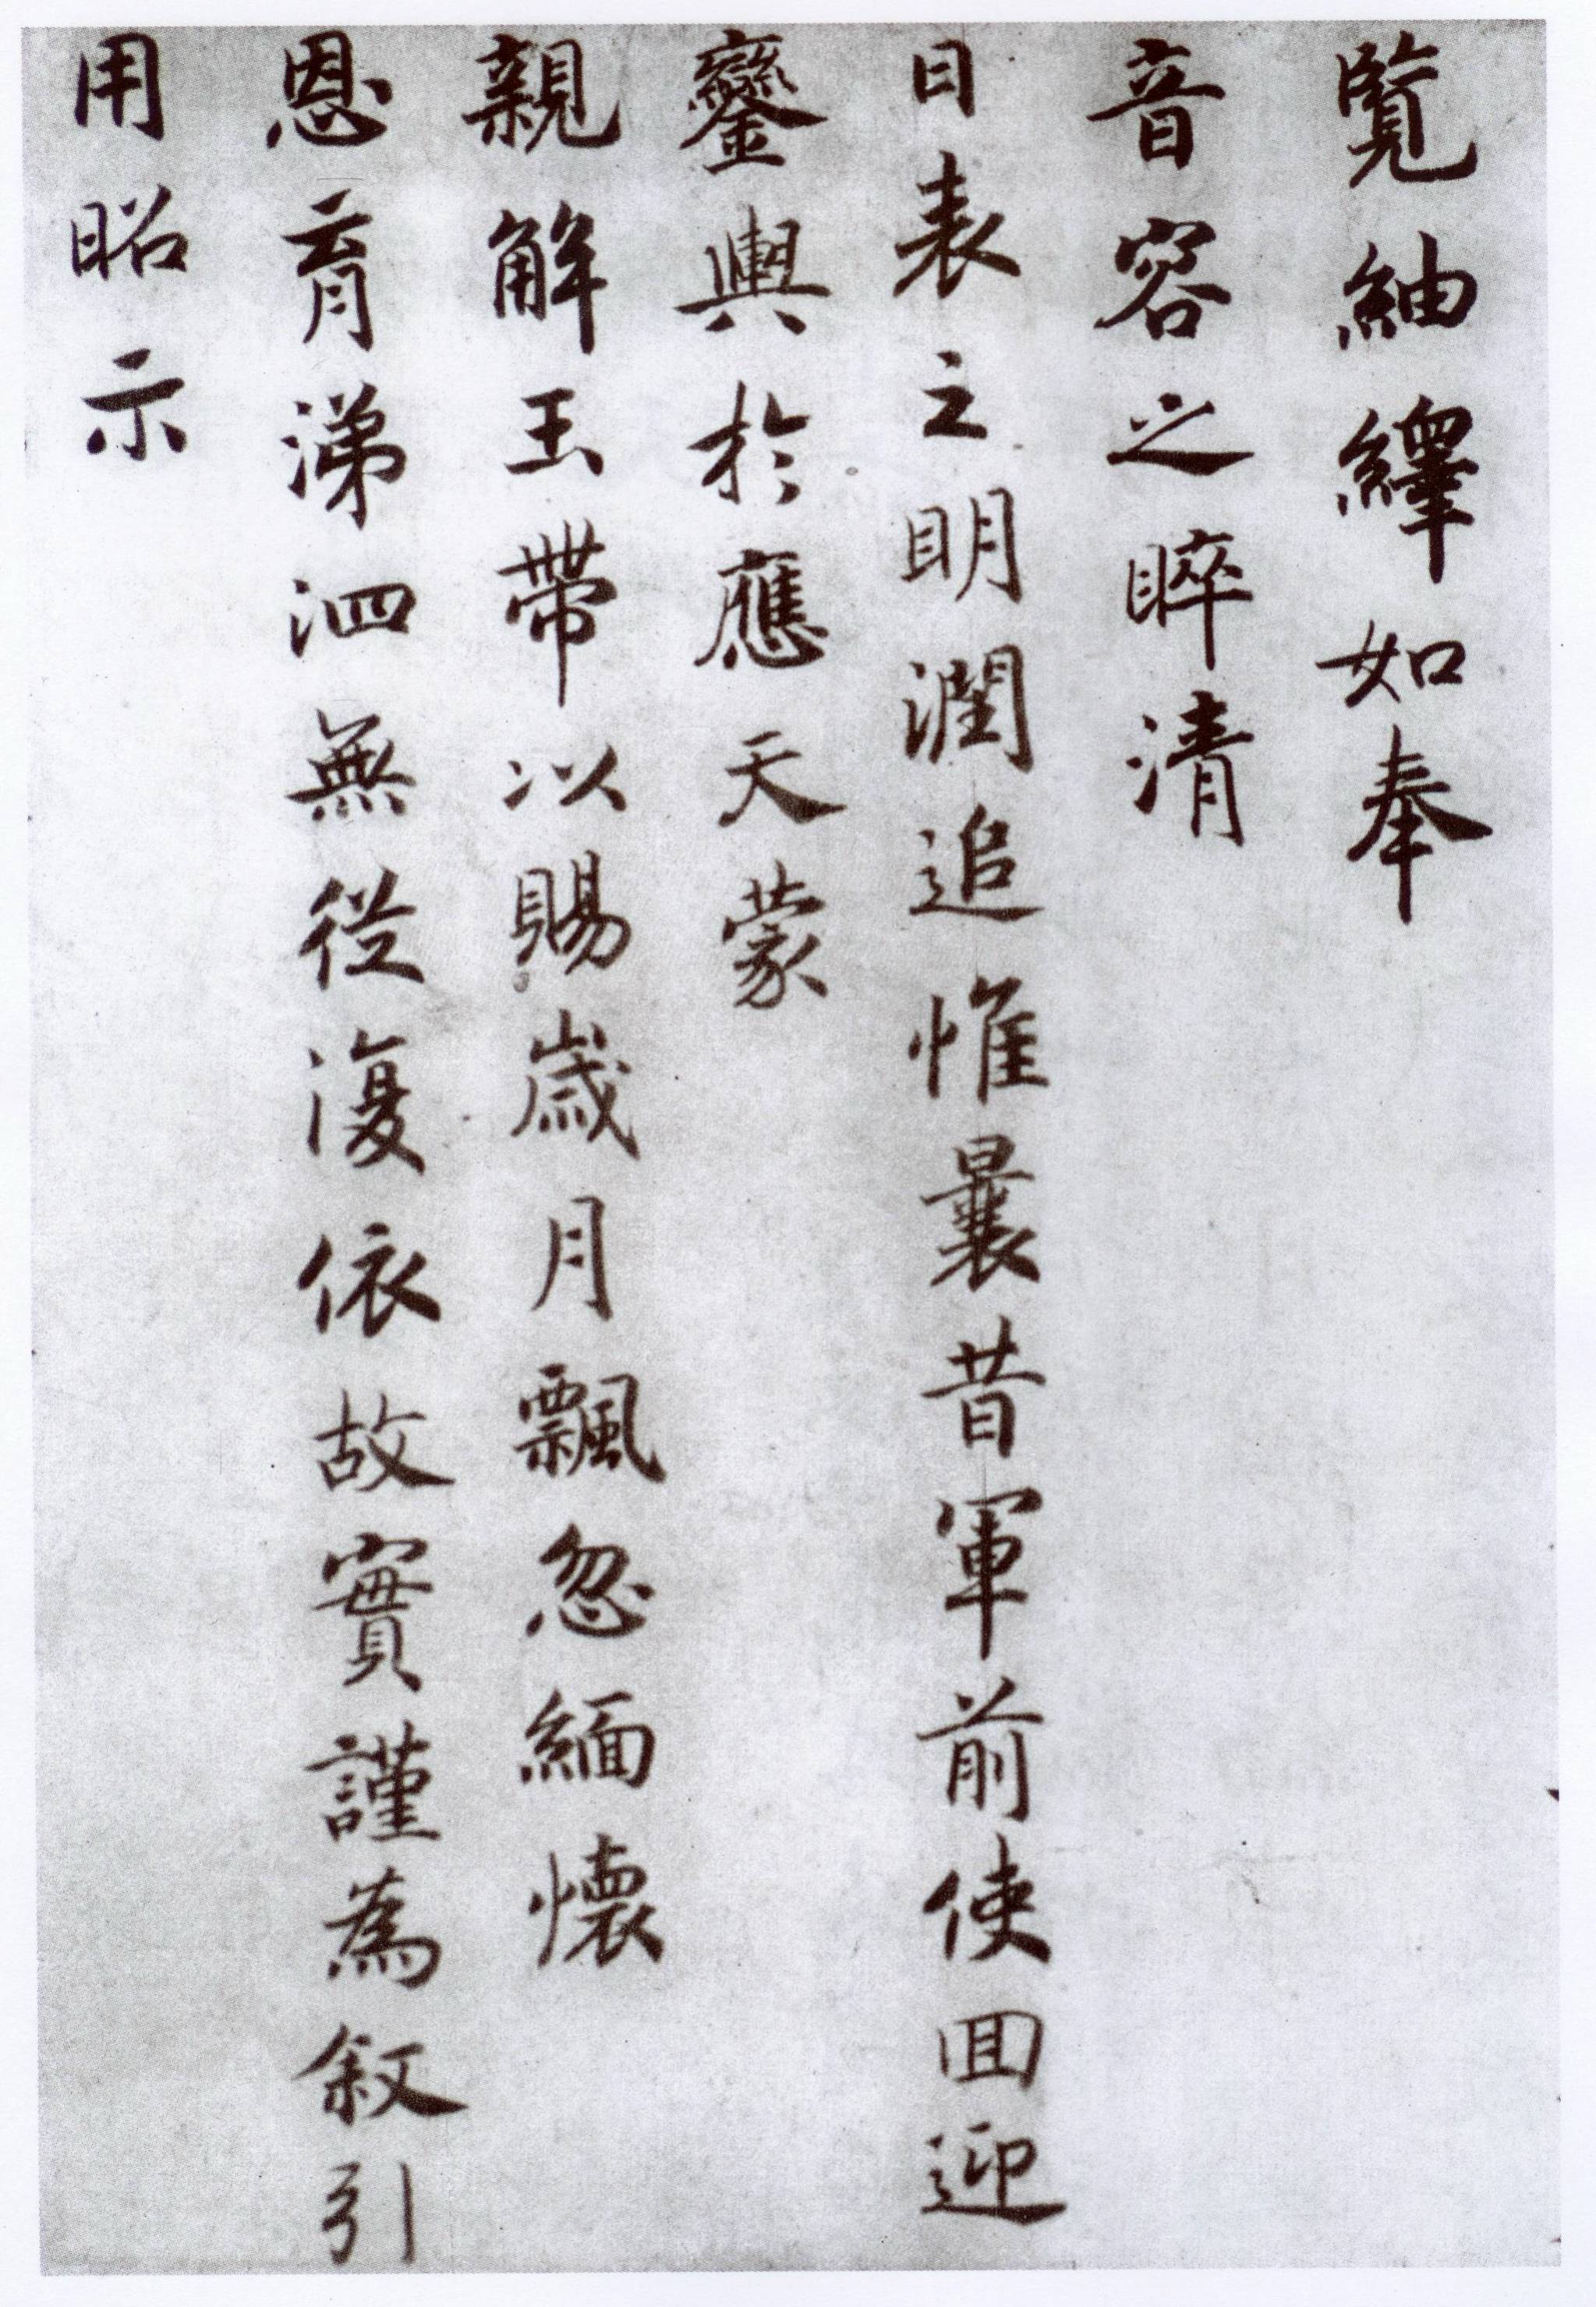 覧紬繹如奉
音容之睟清
日表之明潤追惟曩昔軍前使囬迎
鑾輿於應天蒙
親解玉帶以賜歲月飄忽緬懷
恩育涕泗無從復依故實謹為叙引
用昭示